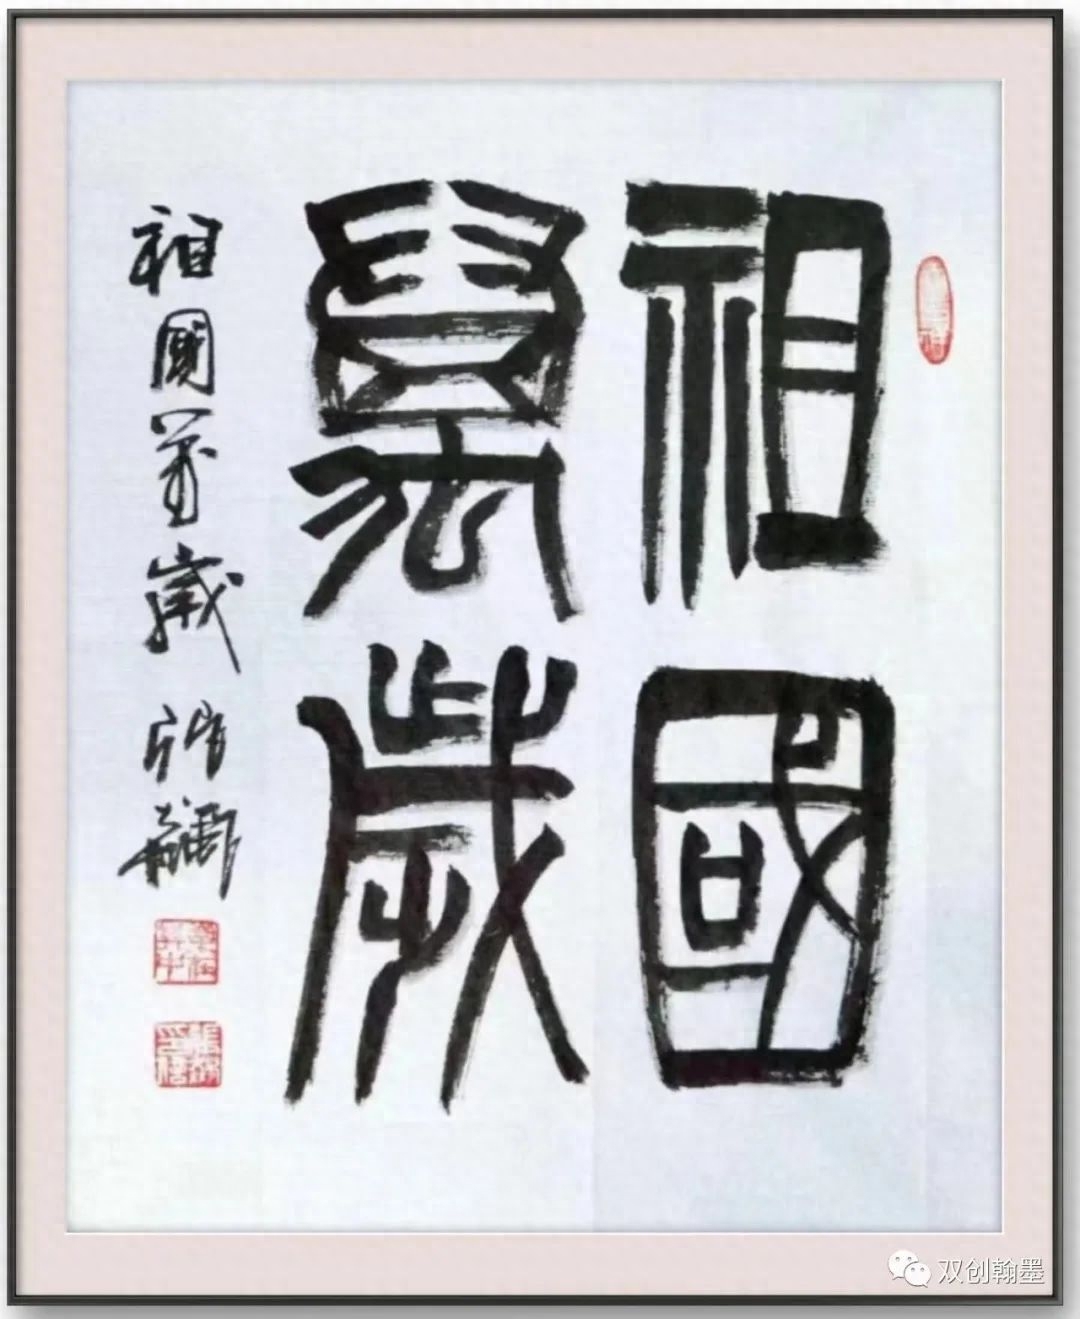 祖國
萬歲
祖國萬歲
双创翰墨